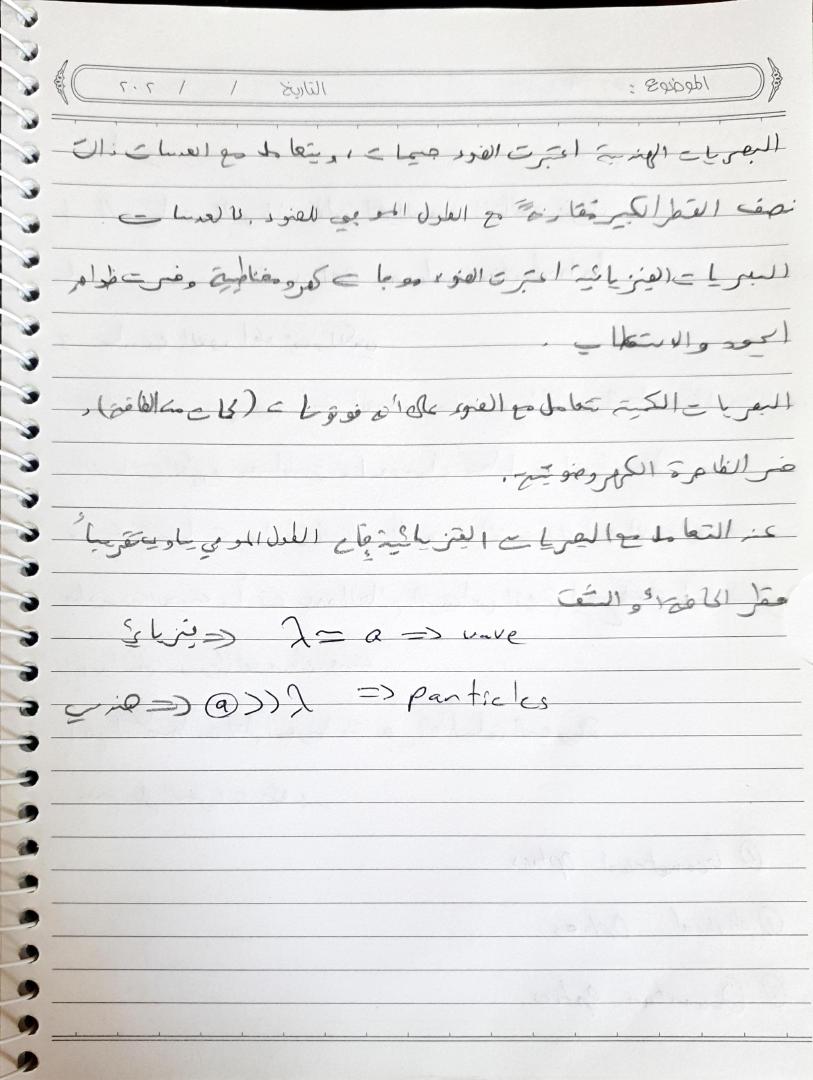 الموضوع : التاريخ / / ٢٠٢
البصريات الهندسية اعتبرت الضوء جسيمات ، ويتعامل مع العدسات ذات
نصف القطر الكبير مقارنةً مع الطول الموجي للضوء . بالعدسات
البصريات الفيزيائية اعتبرت الضوء موجات كهرومغناطيسية وفسرت ظواهر
الحيود والاستقطاب .
البصريات الكمية تتعامل مع الضوء على أنه فوتونات (كمات من الطاقة) ،
فسر الظاهرة الكهروضوئية .
عند التعامل مع البصريات الفيزيائية فإن الطول الموجي يساوي تقريباً
قطر الحافة أو الشق
فيزيائي <= λ ≃ a => wave
هندسي <= a >> λ => particles